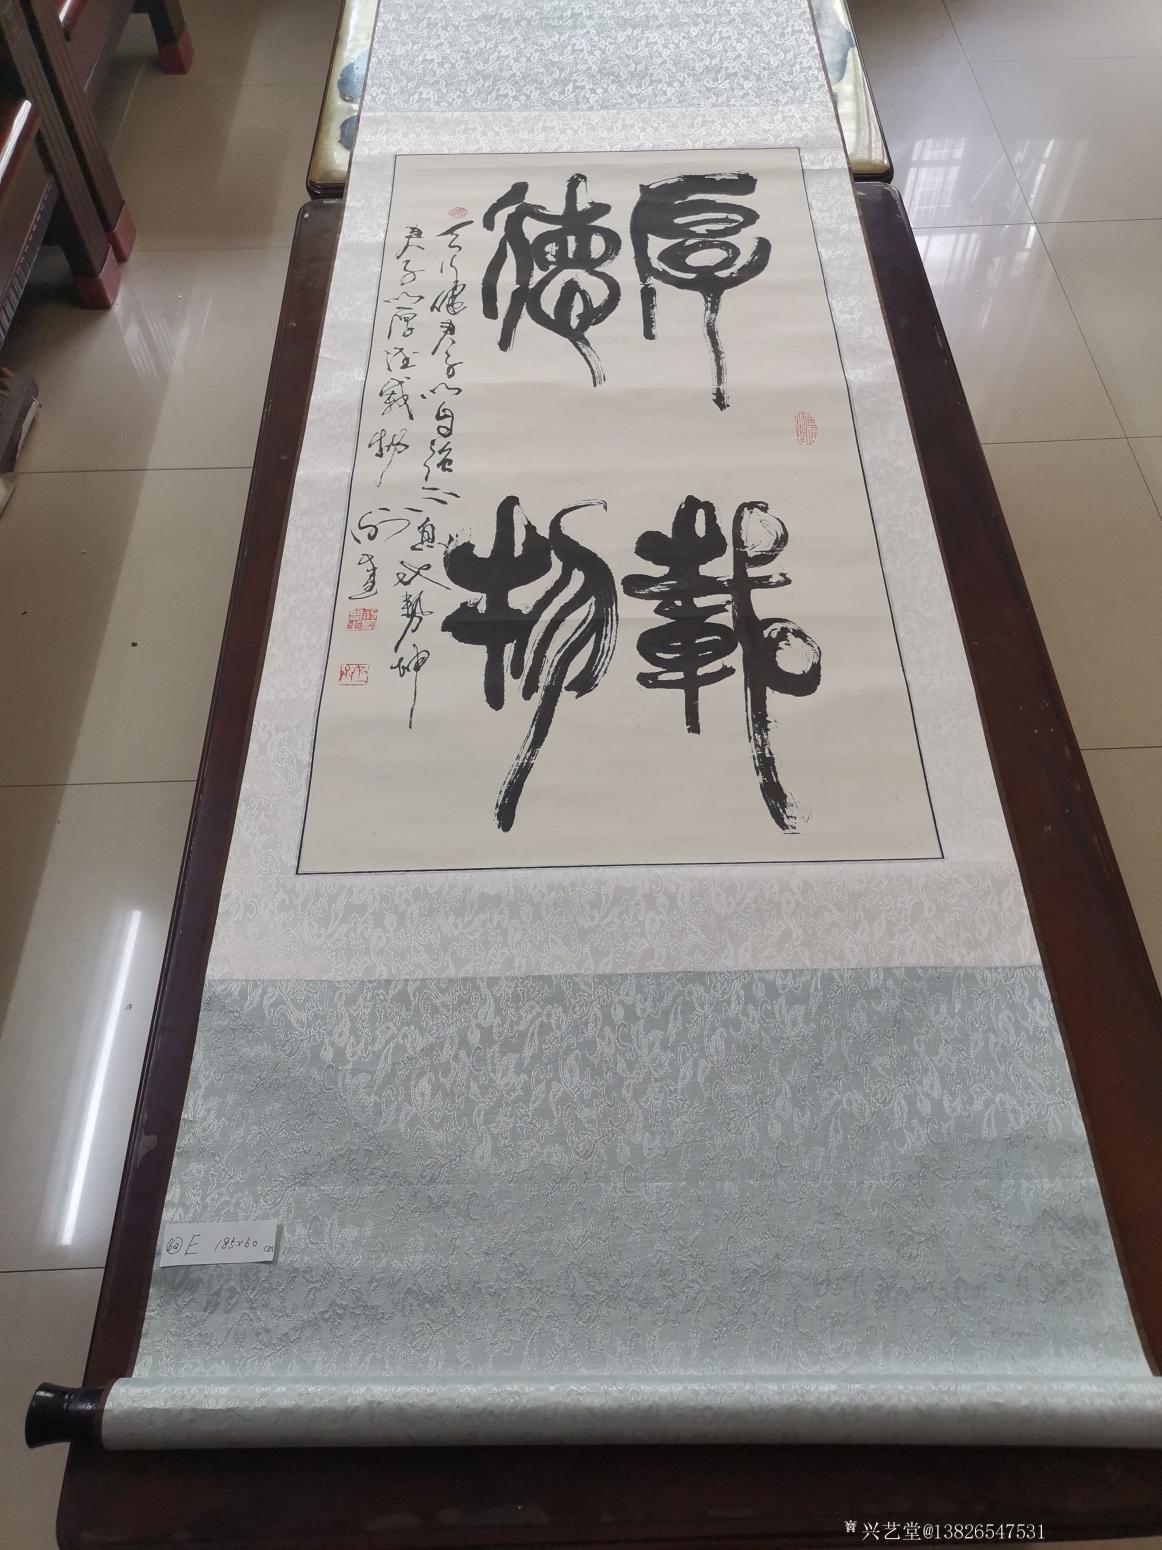 厚德
载物
天行健君子以自强不息地势坤
君子以厚德载物
62 E 185×60 cm
兴艺堂@13826547531